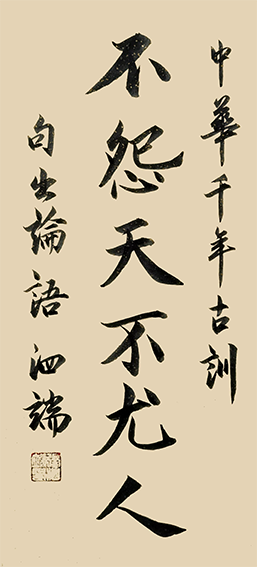 中華千年古訓
不怨天不尤人
句出論語 泗端